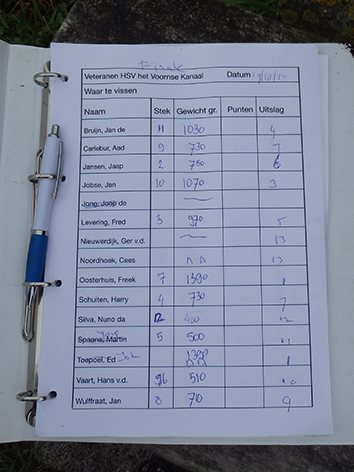 Finale
Veteranen HSV het Voornse Kanaal Datum
Waar te vissen
Naam Stek Gewicht gr. Punten Uitslag
Bruijn, Jan de 11 1030 4
Carlebur, Aad 9 730 7
Jansen, Jaap 2 750 6
Jobse, Jan 10 1070 3
Jong, Joop de
Levering, Fred 3 970 5
Nieuwerdijk, Ger v.d. 13
Noordhoek, Cees 13
Oosterhuis, Freek 7 1390 1
Schuiten, Harry 4 730 7
Silva, Nuno da 12 400 12
Spaans, Martin 5 500 11
Toepoel, Ed 1390 1
Vaart, Hans v.d. 510 10
Wulffraat, Jan 8 710 9